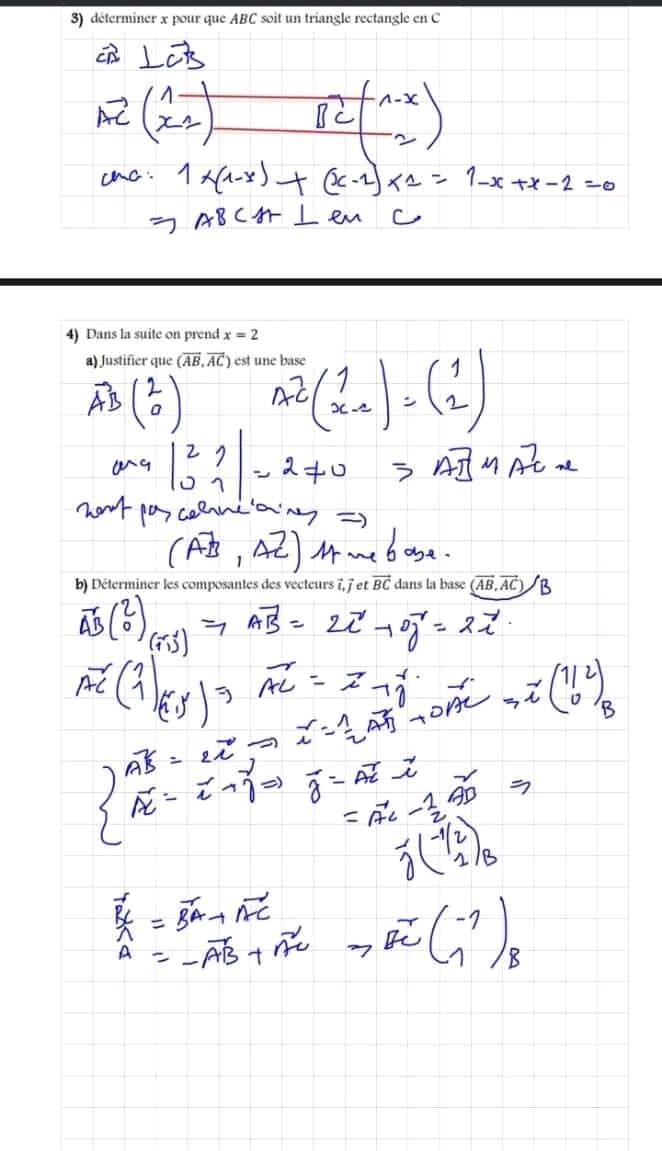 3) déterminer x pour que ABC soit un triangle rectangle en C
⊥ CB
AC (1 x-1) BC (1-x 2)
1×(1-x) + (x-1)×2 = 1-x+x-2=0
⇒ ABC ⊥ en C
4) Dans la suite on prend x = 2
a) Justifier que (AB, AC) est une base
AB (2 0) AC (1 x-1) = (1 1)
|2 1 0 1| = 2≠0 ⇒ AB AC ne
sont pas colinéaires ⇒
(AB, AC) est une base.
b) Déterminer les composantes des vecteurs i, j et BC dans la base (AB, AC) B
AB (2 0)(i,j) ⇒ AB = 2i + 0j = 2i.
AC (1 1)(i,j) ⇒ AC = i + j.
AB = 2i ⇒ i = 1/2 AB + 0AC ⇒ i (1/2 0)B
AC = i + j ⇒ j = AC - i
= AC - 1/2 AB ⇒
j (-1/2 1)B
BC = BA + AC
A = -AB + AC ⇒ BC (-1 1)B